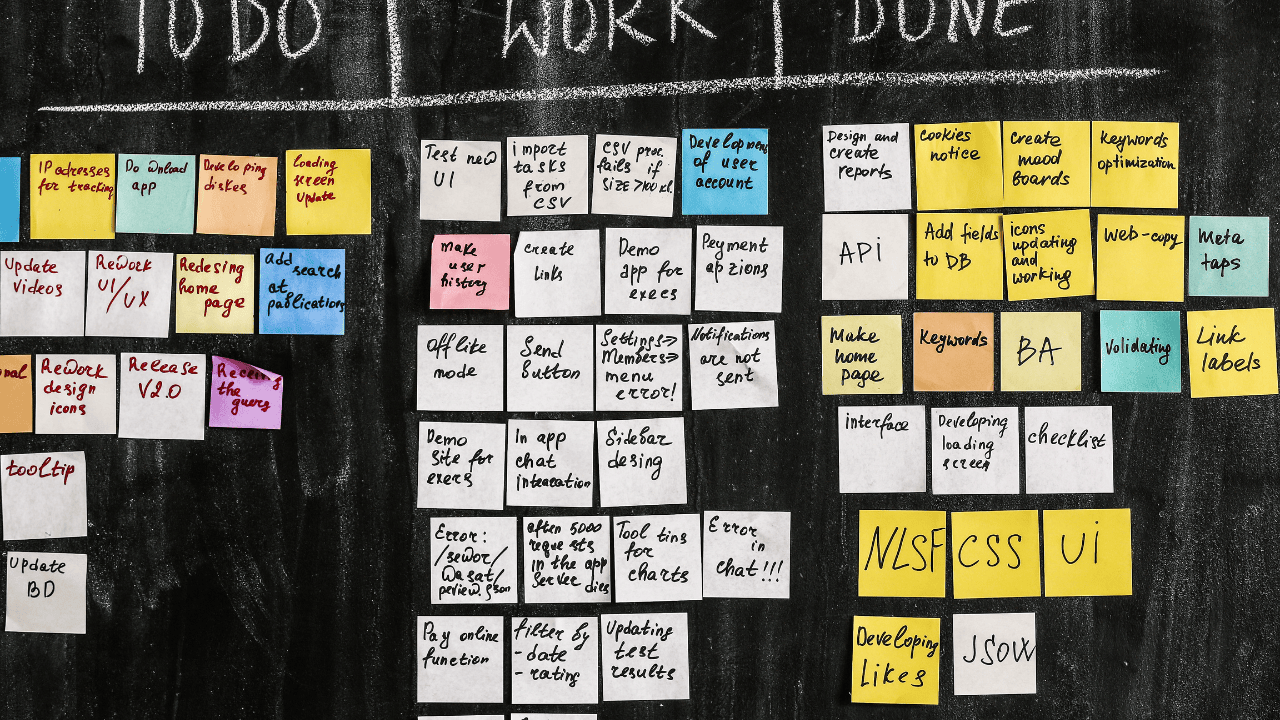 TO DO | WORK | DONE
IP adresses
for tracking
Download
app
Developing
diskes
loading
screen
update
Update
Videos
ReWork
UI/UX
Redesing
home
page
add
search
at
publications
onal
ReWork
design
icons
Release
V2.0
the
tooltip
Update
BD
Test new
UI
import
tasks
from
CSV
CSV proc.
fails if
size >100
Development
of user
account
make
user
history
create
links
Demo
app for
execs
Peyment
apzions
Offlike
mode
Send
button
Settings=>
Members=>
menu
error!
Notifications
are not
sent
Demo
site for
execs
In app
chat
Sidebar
desing
Error:
after 5000
requests
in the app
server dies
Tool tins
for
charts
Error
in
chat!!!
Pay online
function
filter by
- date
- rating
Updating
test
results
Design and
create
reports
cookies
notice
Create
mood
boards
keywords
optimization
API
Add fields
to DB
icons
updating
and
working
Web-copy
Meta
taps
Make
home
page
Keywords
BA
Validating
Link
labels
interface
Developing
loading
screen
checklist
NLSF
CSS
UI
Developing
Likes
JSON